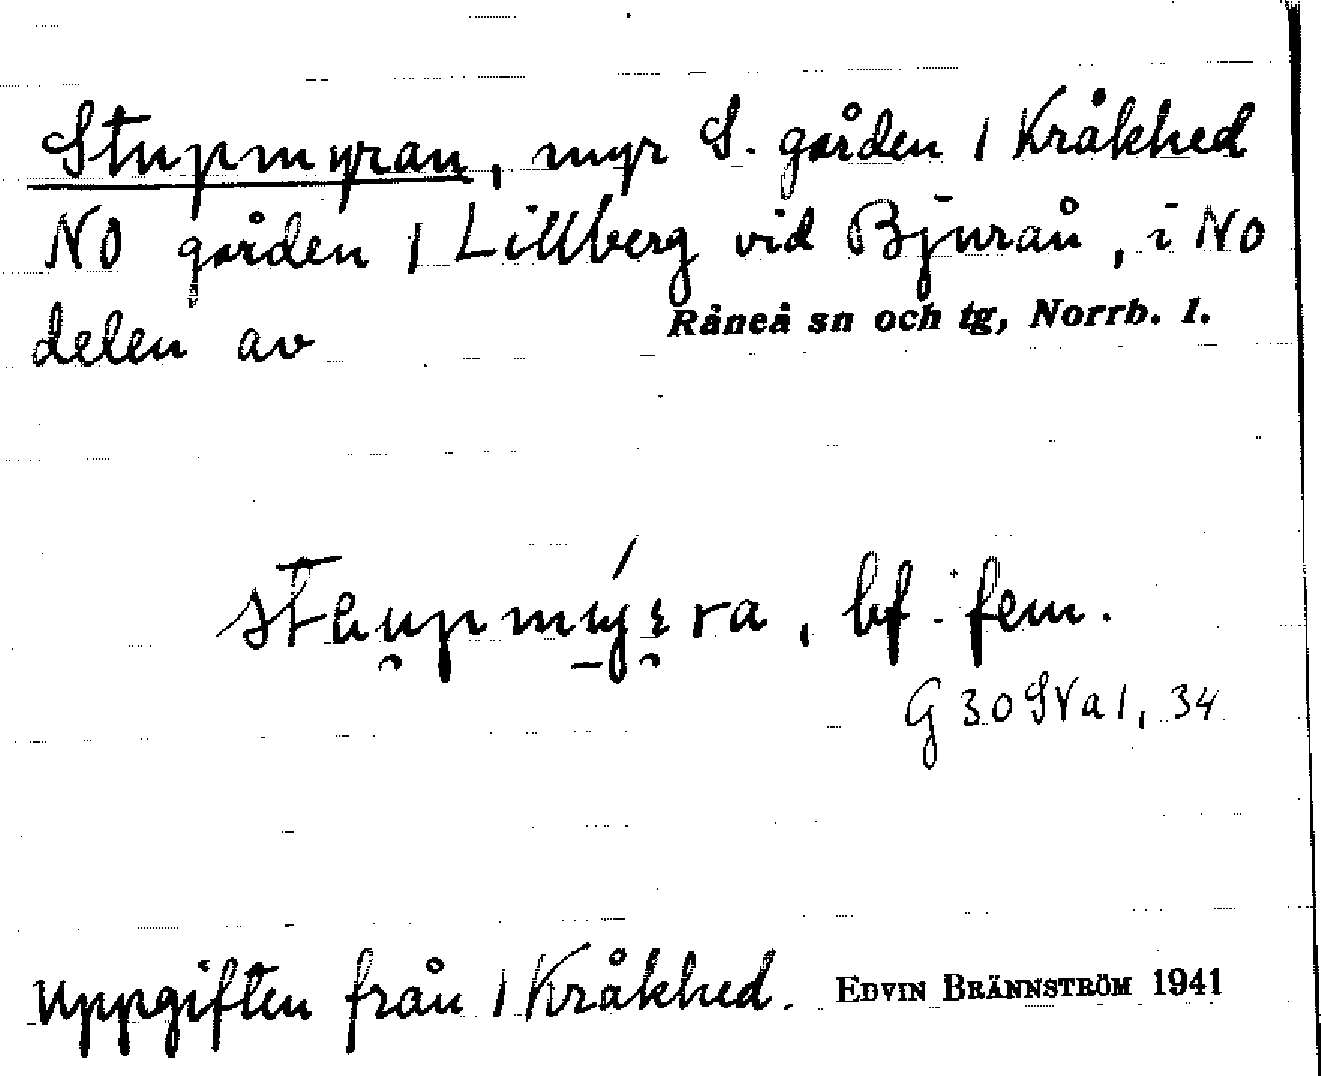 Stupmyran, myr S. gården 1 Kråkhed
NO gården 1 Lillberg vid Bjurån, i NO
delen av Råneå sn och tg, Norrb. l.
bf. fem.
G 30 SVa1, 34
Uppgiften från 1 Kråkhed. EDVIN BRÄNNSTRÖM 1941